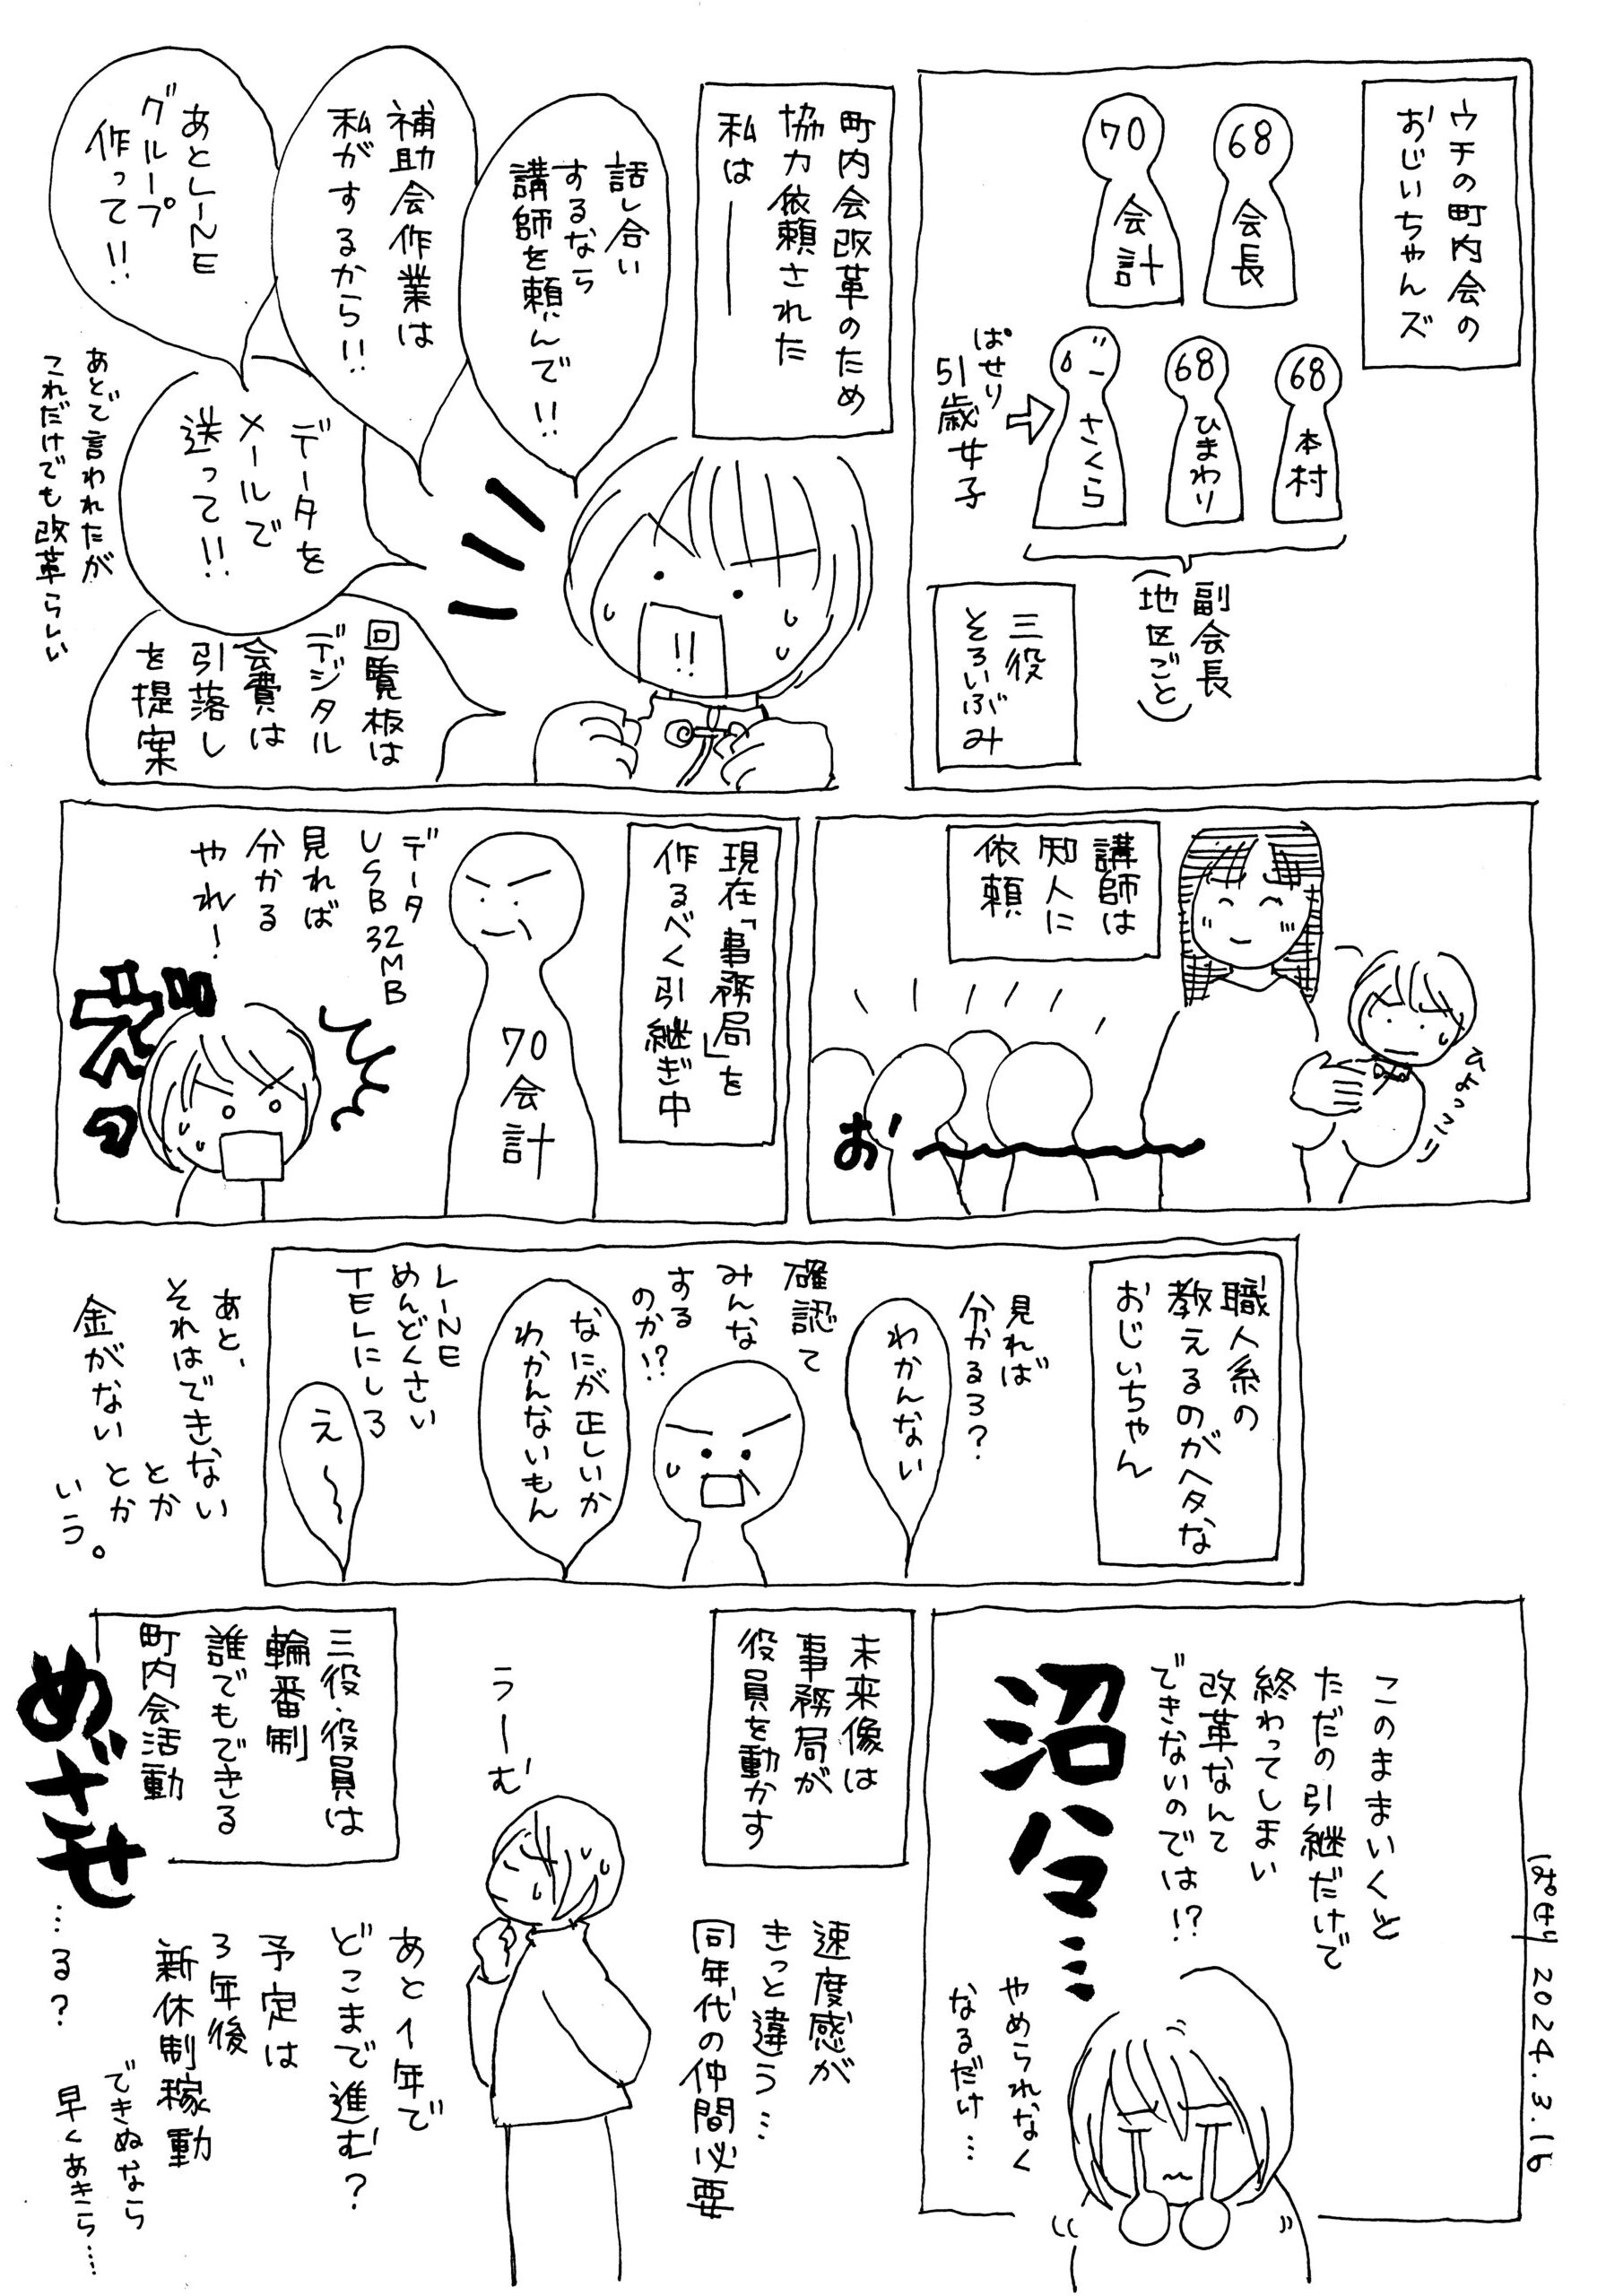 ウチの町内会の
おじいちゃんズ
68
会長
70
会計
68
本村
68
ひまわり
さくら
ぱせり
51歳女子
副会長
(地区ごと)
三役
そろいぶみ
町内会改革のため
協力依頼された
私は――
話し合い
するなら
講師を頼んで!!
補助会作業は
私がするから!!
あとLINE
グループ
作って!!
データを
メールで
送って!!
回覧板は
デジタル
会費は
引落し
を提案
あとで言われたが
これだけでも改革らしい
!!
講師は
知人に
依頼
ひょっこり
お〜
現在「事務局」を
作るべく引継ぎ中
70
会計
データ
USB32MB
見れば
分かる
やれ!
て
え゛っ
職人系の
教えるのがヘタな
おじいちゃん
見れば
分かるろ?
わかんない
確認て
みんな
する
のか!?
なにが正しいか
わかんないもん
LINE
めんどくさい
TELにしろ
え〜
あと、
それはできない
とか
金がないとか
いう。
このままいくと
ただの引継だけで
終わってしまい
改革なんて
できないのでは!?
沼々…
やめられなく
なるだけ…
未来像は
事務局が
役員を動かす
速度感が
きっと違う…
同年代の仲間必要
うーむ
三役・役員は
輪番制
誰でもできる
町内会活動
めざせ
…る?
あと1年で
どこまで進む?
予定は
3年後
新体制稼動
できぬなら
早くあきら…
ぱせり 2024.3.16